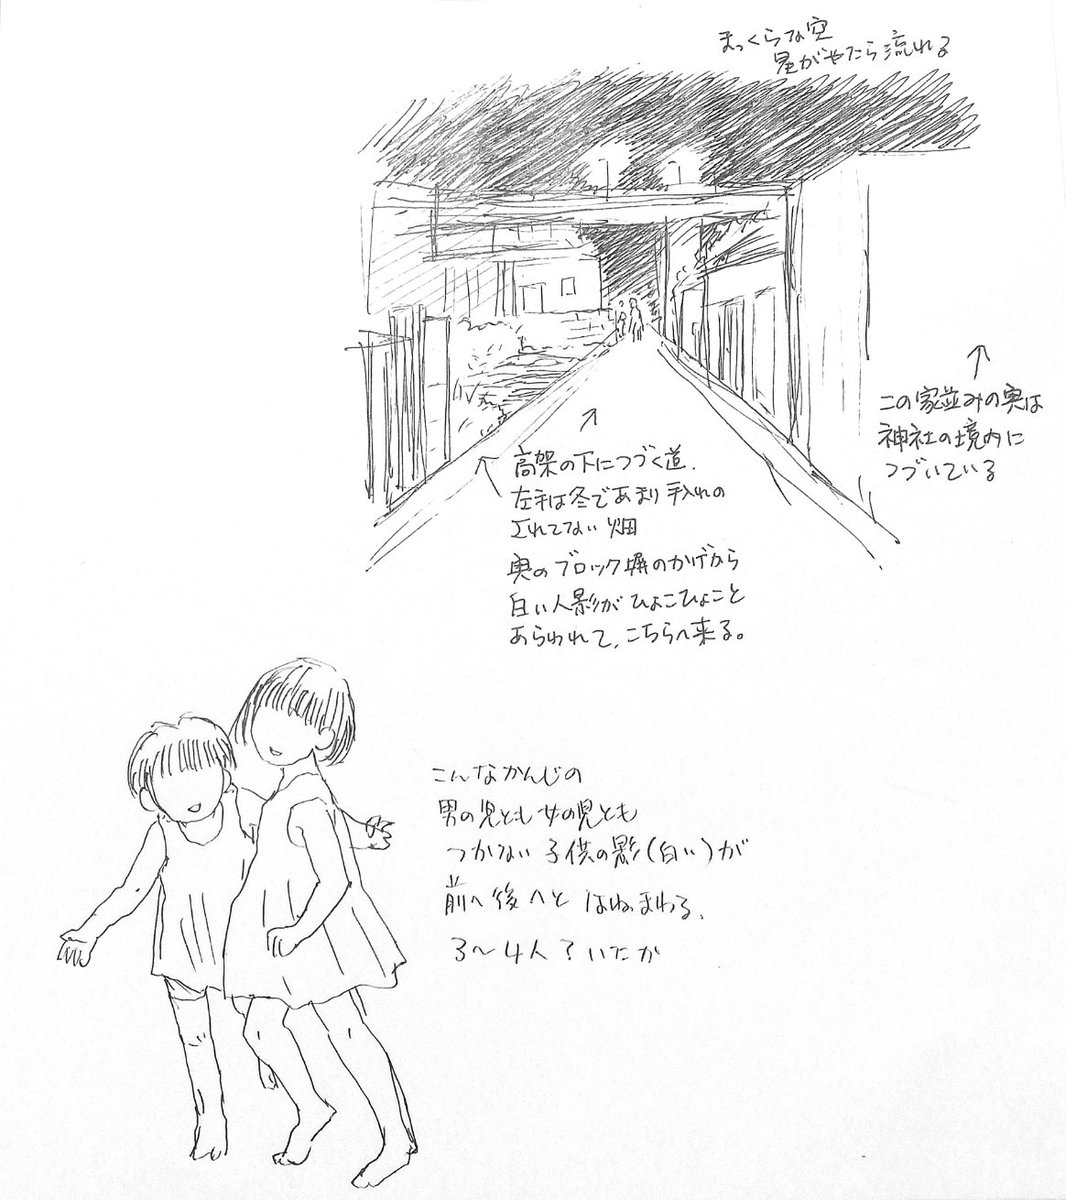 まっくらな空
星がやたら流れる
この家並みの奥は
神社の境内に
つづいている
高架の下につづく道.
左手は冬であまり手入れの
されてない畑
奥のブロック塀のかげから
白い人影がひょこひょこと
あらわれて、こちらへ来る。
こんなかんじの
男の児とも女の児とも
つかない子供の影(白い)が
前へ後へとはねまわる、
3〜4人?いたか